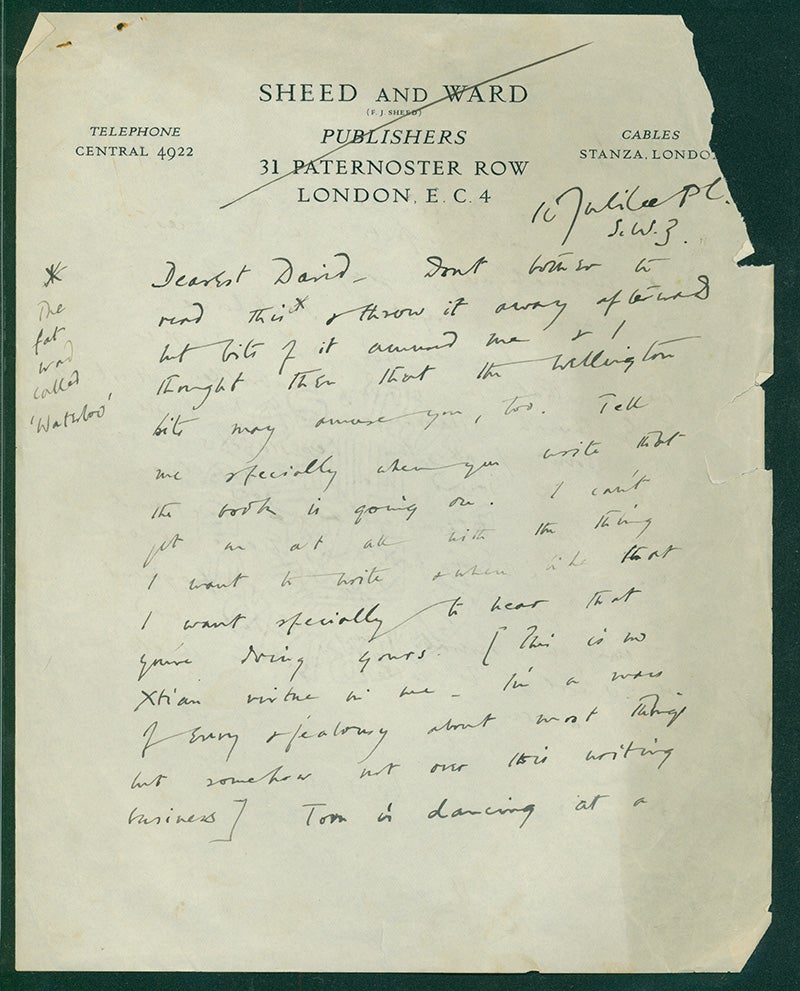 SHEED AND WARD
(F. J. SHEED)
PUBLISHERS
31 PATERNOSTER ROW
LONDON, E. C. 4
TELEPHONE
CENTRAL 4922
CABLES
STANZA, LONDO
Jubilee Pl.
S.W.3.
Dearest David – Don't bother to
read this x & throw it away afterwards
but bits of it amused me & I
thought then that the Wellington
bits may amuse you, too. Tell
me specially when you write that
the book is going on. I can't
get on at all with the thing
I want to write & when like that
I want specially to hear that
you're doing yours. [This is no
Xtian virtue in me – I'm a mass
of envy & jealousy about most things
but somehow not over this writing
business] Tom is dancing at a
x
The
fat
wad
called
'Waterloo'